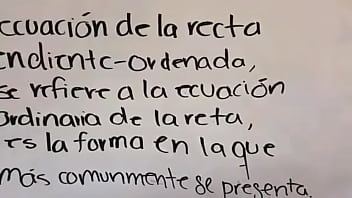 ecuación de la recta
endiente-ordenada,
se refiere a la ecuación
Ordinaria de la reta,
es la forma en la que
más comunmente se presenta.